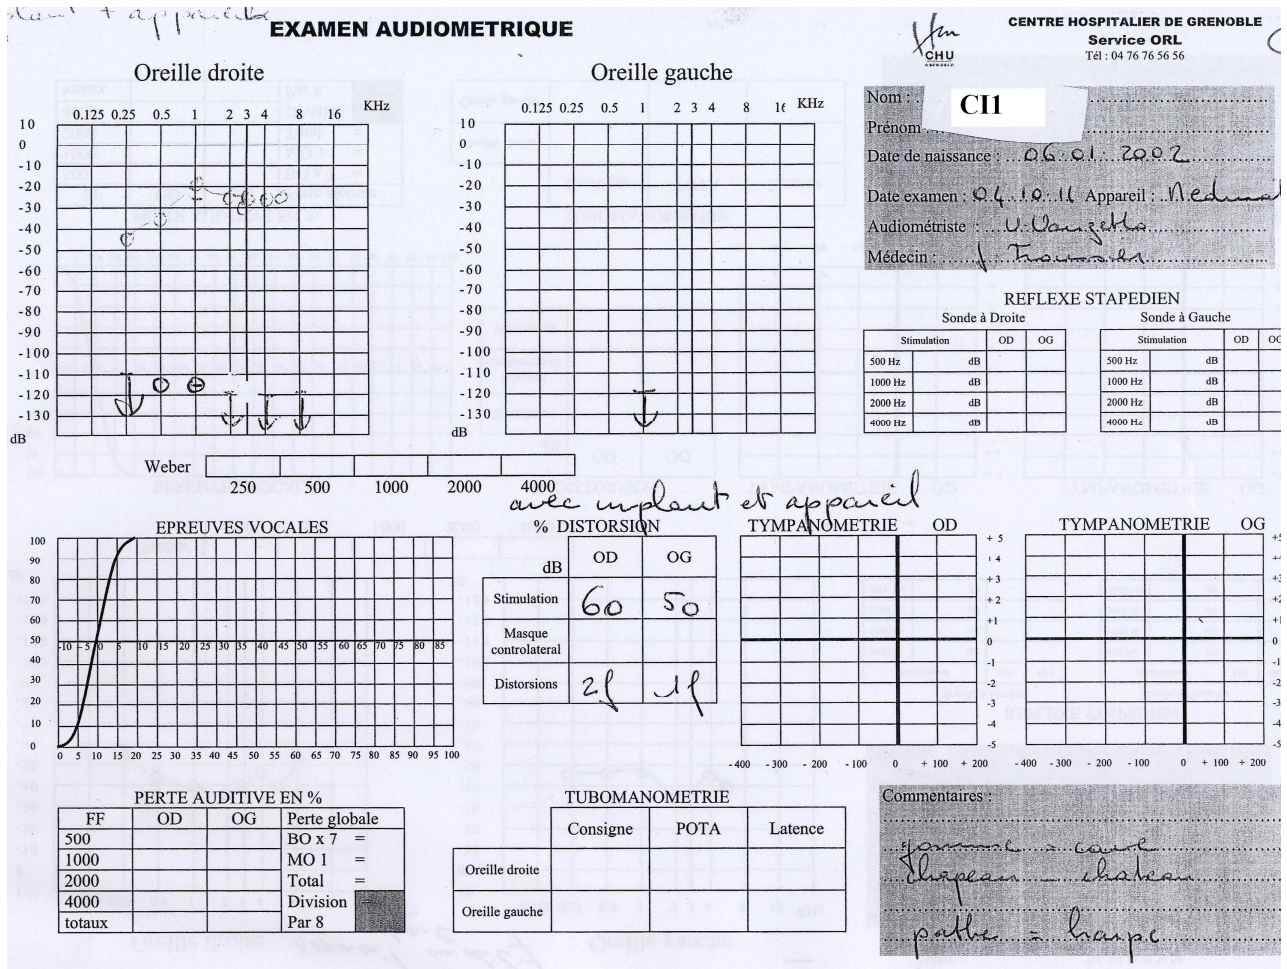 plant + appareils
EXAMEN AUDIOMETRIQUE
CENTRE HOSPITALIER DE GRENOBLE
Service ORL
Tél : 04 76 76 56 56
CHU
GRENOBLE
Nom :
CI1
Prénom
Date de naissance : 06.01.2002
Date examen : 04.10.11 Appareil :
Audiométriste :
Médecin :
Oreille droite
0.125 0.25 0.5 1 2 3 4 8 16 KHz
10
0
-10
-20
-30
-40
-50
-60
-70
-80
-90
-100
-110
-120
-130
dB
Oreille gauche
0.125 0.25 0.5 1 2 3 4 8 16 KHz
10
0
-10
-20
-30
-40
-50
-60
-70
-80
-90
-100
-110
-120
-130
dB
REFLEXE STAPEDIEN
Sonde à Droite
Stimulation OD OG
500 Hz dB
1000 Hz dB
2000 Hz dB
4000 Hz dB
Sonde à Gauche
Stimulation OD OG
500 Hz dB
1000 Hz dB
2000 Hz dB
4000 Hz dB
Weber
250 500 1000 2000 4000
avec implant et appareil
EPREUVES VOCALES
100
90
80
70
60
50
40
30
20
10
0
-10 -5 0 5 10 15 20 25 30 35 40 45 50 55 60 65 70 75 80 85
0 5 10 15 20 25 30 35 40 45 50 55 60 65 70 75 80 85 90 95 100
% DISTORSION
dB OD OG
Stimulation 60 50
Masque
controlateral
Distorsions 2f 1f
TYMPANOMETRIE OD
+ 5
+ 4
+ 3
+ 2
+ 1
0
-1
-2
-3
-4
-5
- 400 - 300 - 200 - 100 0 + 100 + 200
TYMPANOMETRIE OG
+5
+4
+3
+2
+1
0
-1
-2
-3
-4
-5
- 400 - 300 - 200 - 100 0 + 100 + 200
PERTE AUDITIVE EN %
FF OD OG Perte globale
500 BO x 7 =
1000 MO 1 =
2000 Total =
4000 Division =
totaux Par 8
TUBOMANOMETRIE
Consigne POTA Latence
Oreille droite
Oreille gauche
Commentaires :
chapeau = chateau
= harpe